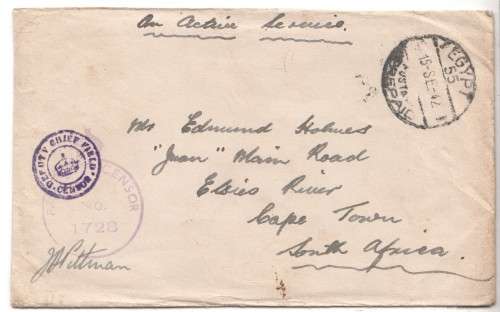 On Active Service.
EGYPT
55
15 SE. 42
POSTAL SERVICE
Mr Edmund Holmes
"Jean" Main Road
Elsies River
Cape Town
South Africa.
DEPUTY CHIEF FIELD
CENSOR
CENSOR
NO.
1728